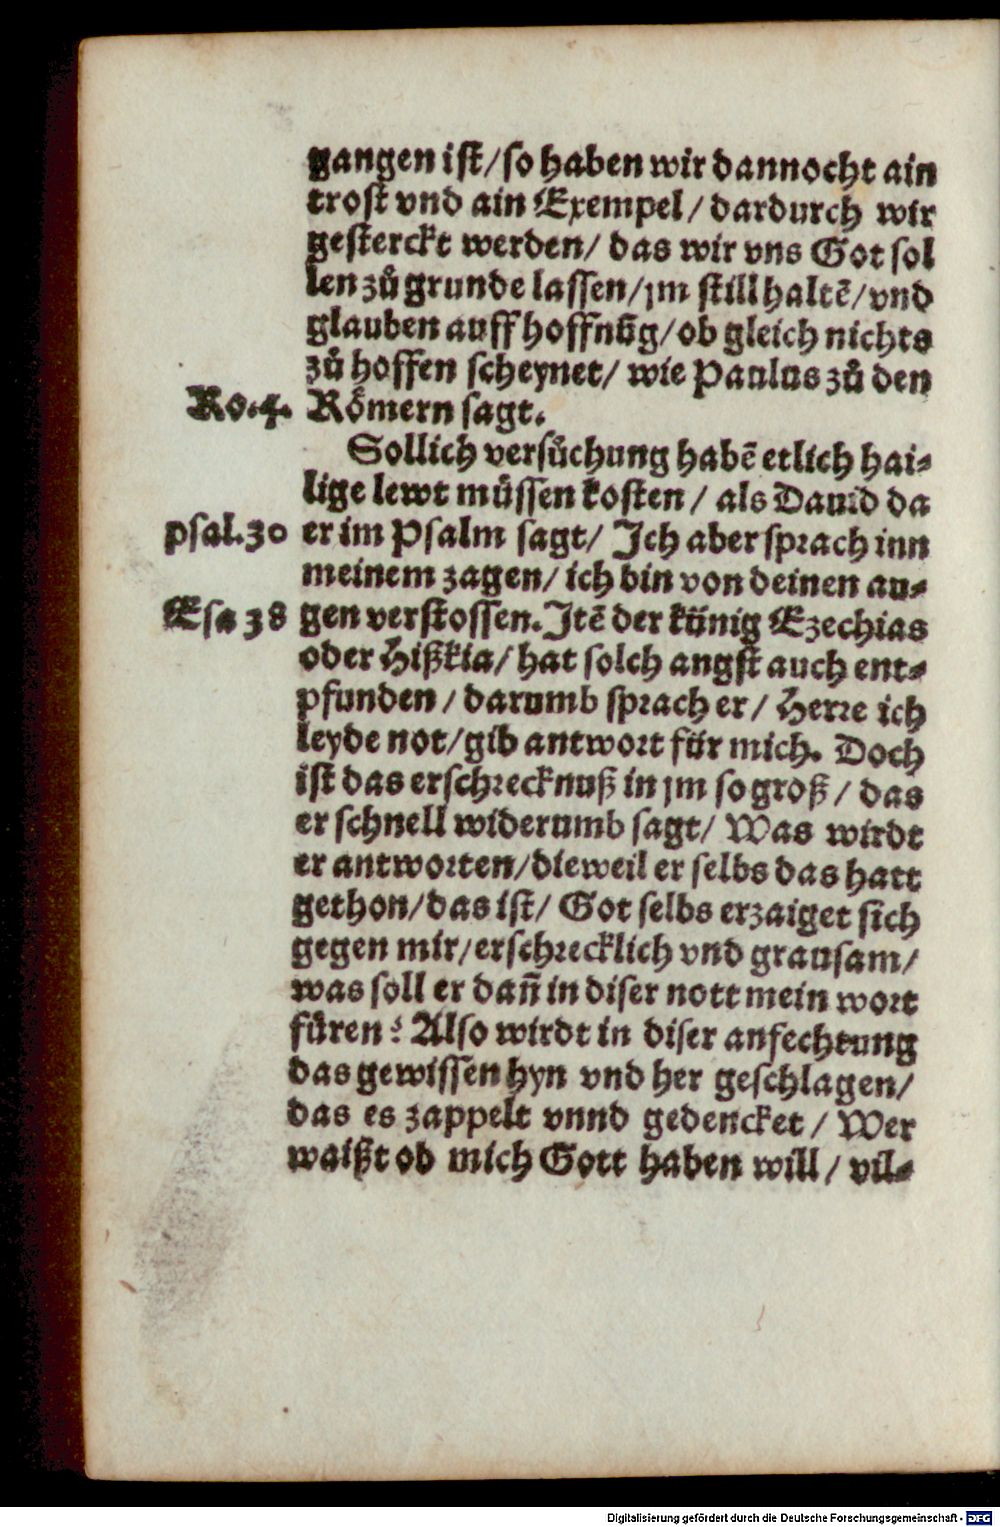 gangen ist/so haben wir dannocht ain
trost vnd ain Exempel/ dardurch wir
gesterckt werden/ das wir vns Got sol
len zů grunde lassen/jm still haltē/vnd
glauben auff hoffnūg/ob gleich nichts
zů hoffen scheynet/ wie Paulus zů den
Ro.4. Römern sagt.
Sollich versůchung habē etlich hai⸗
lige lewt müssen kosten/ als Dauid da
psal.30 er im Psalm sagt/ Ich aber sprach inn
meinem zagen/ ich bin von deinen au⸗
Esa 38 gen verstossen. Itē der künig Ezechias
oder Hißkia/ hat solch angst auch ent⸗
pfunden/ darumb sprach er/ Herre ich
leyde not/gib antwort für mich. Doch
ist das erschrecknuß in jm so groß/ das
er schnell widerumb sagt/ Was wirdt
er antworten/dieweil er selbs das hatt
gethon/das ist/ Got selbs erzaiget sich
gegen mir/erschrecklich vnd grausam/
was soll er dañ in diser nott mein wort
fůren? Also wirdt in diser anfechtung
das gewissen hyn vnd her geschlagen/
das es zappelt vnnd gedencket/ Wer
waißt ob mich Gott haben will/ vil⸗
Digitalisierung gefördert durch die Deutsche Forschungsgemeinschaft - DFG